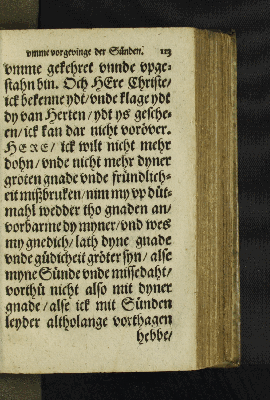 vmme vorgevinge der Sünden. 113
vmme gekehret vnnde vpge-
stahn bin. Och HEre Christe/
ick bekenne ydt/ vnde klage ydt
dy van Herten/ ydt ys gesche-
en/ ick kan dar nicht voröver.
HERE/ ick wilt nicht mehr
dohn/ vnde nicht mehr dyner
groten gnade vnde fründlich-
eit mißbruken/ nim my vp düt-
mahl wedder tho gnaden an/
vorbarme dy myner/ vnd wes
my gnedich/ lath dyne gnade
vnde güdicheit gröter syn/ alse
myne Sünde vnde missedaht/
vorthü nicht also mit dyner
gnade/ alse ick mit Sünden
leyder altholange vorthagen
hebbe/